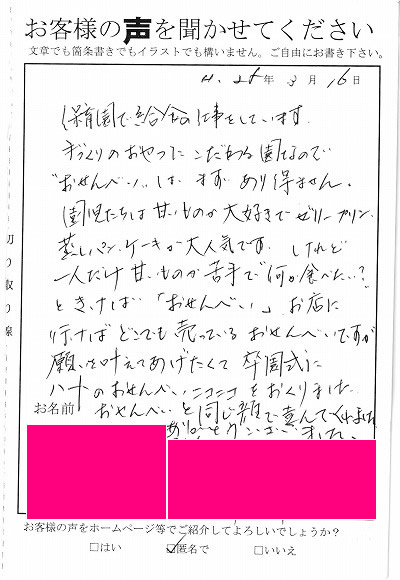 お客様の声を聞かせてください
文章でも箇条書きでもイラストでも構いません。ご自由にお書き下さい。
H.28年3月16日
保育園で給食の仕事をしています。
手づくりのおやつにこだわる園なので
"おせんべい"は まず あり得ません。
園児たちは甘いものが大好きでゼリー プリン、
蒸しパン、ケーキが大人気です。 けれど
一人だけ甘いものが苦手で「何が食べたい?
ときけば「おせんべい」 お店に
行けばどこでも売っているおせんべいですが
願いを叶えてあげたくて 卒園式に
ハートのおせんべい ニコニコ をおくりました
おせんべいと同じ顔で喜んでくれました
ありがとうございました。
お名前
切り取り線
お客様の声をホームページ等でご紹介してよろしいでしょうか?
□はい ☑匿名で □いいえ